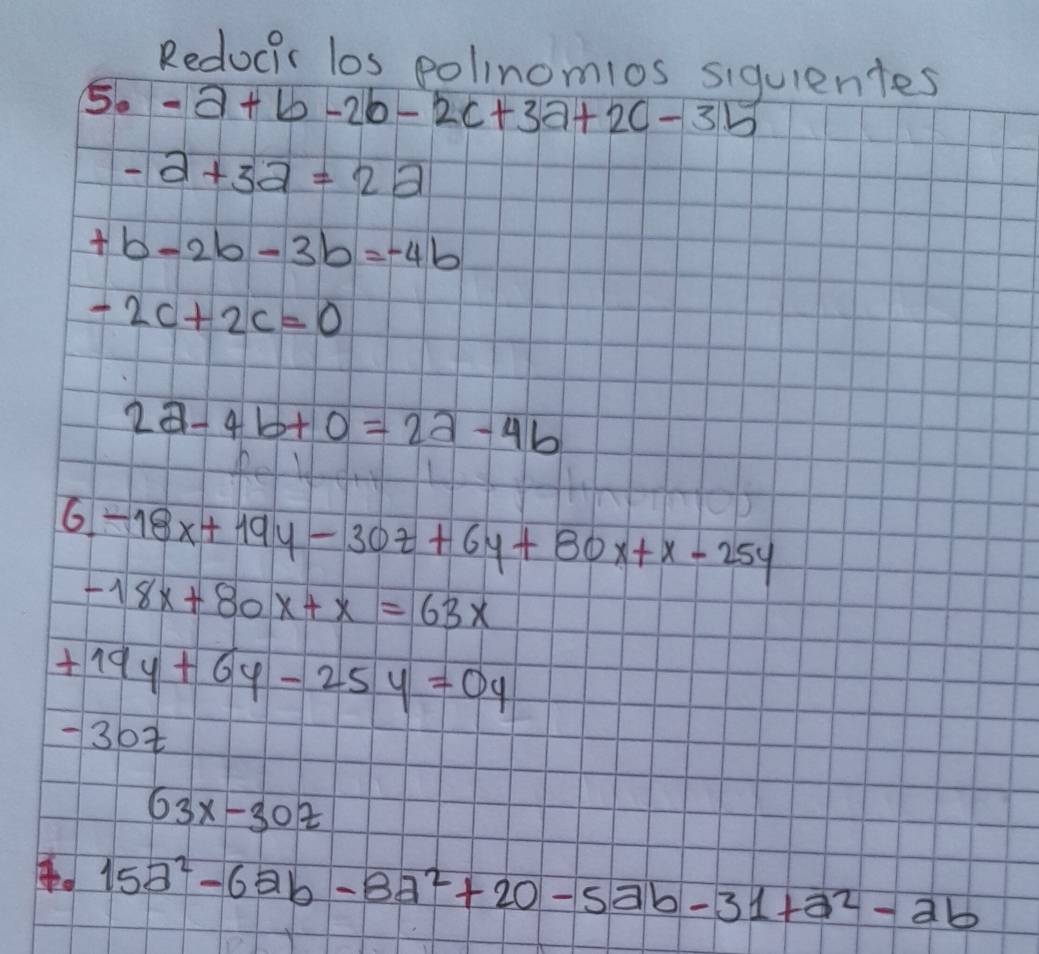 Reducir los polinomios siguientes
5. -a+b-2b-2c+3a+2c-3b
-a+3a=2a
+b-2b-3b=-4b
-2c+2c=0
2a-4b+0=2a-4b
6. -18x+19y-30z+6y+80x+x-25y
-18x+80x+x=63x
+19y+6y-25y=0y
-30z
63x-30z
7. 15a²-6ab-8a²+20-5ab-31+a²-ab